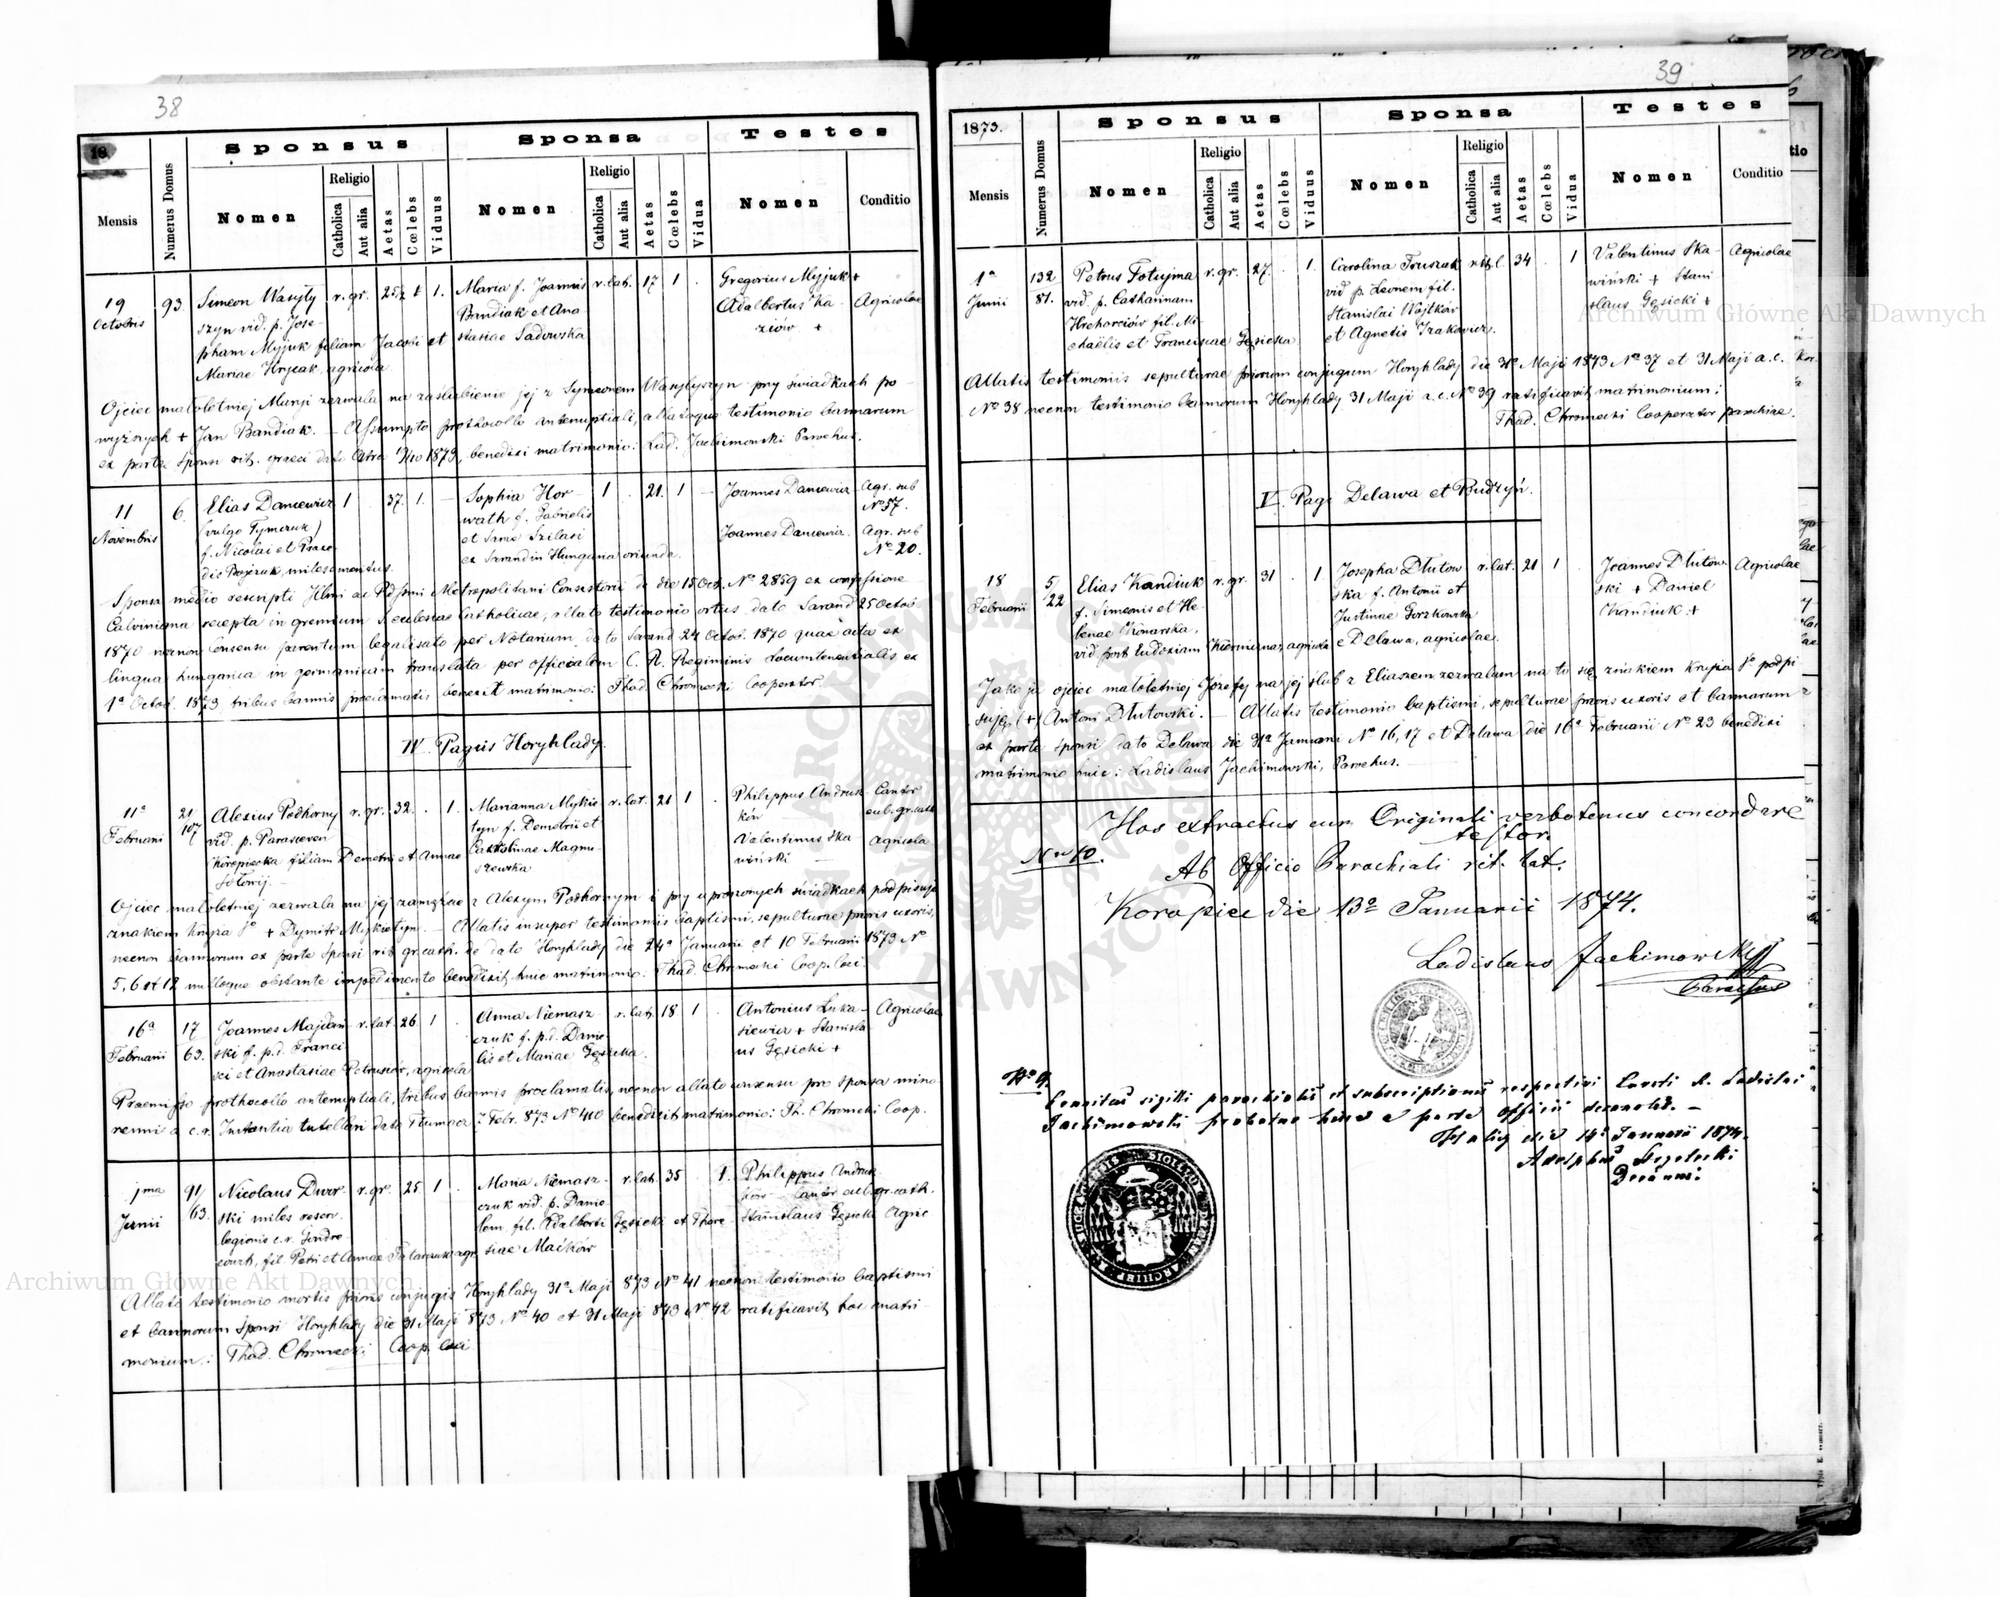 38
18
Sponsus
Sponsa
Testes
Mensis
Numerus Domus
Nomen
Religio
Catholica
Aut alia
Aetas
Cœlebs
Vidus
Nomen
Religio
Catholica
Aut alia
Aetas
Cœlebs
Vidua
Nomen
Conditio
19
Octobris
93.
Simeon Wasyły
szyn vid. p. Jose-
pham Myjuk filiam Jacobi et
Mariae Hrycak, agricola
r. gr.
1.
Maria f. Joannis
Bandiak et Ana
stasiae Sadowska
r. lat.
17
1
Gregorius Myjuk +
Adalbertus Ka-
ziow +
Agricolae
Ojciec małoletniej Maryi zezwala na zaślubienie jej z Symeonem Wasyłyszyn przy świadkach po-
wyższych + Jan Bandiak. — Assumpto prothocollo antenuptiali, allatoque testimonio bannorum
ex parte sponsi rit. graeci benedixi matrimonio: Lad. Jachimowski Parochus.
11
Novembris
6.
Elias Dancewicz
(vulgo Tymczuk)
f. Nicolai et Prase-
1
37.
1.
Sophia Hor-
wath f. Gabrielis
et Sarae Szilasi
ex Sarand in Hungaria oriunda.
1
21.
1
Joannes Dancewicz
Agr. sub
No 57.
Joannes Dancewicz.
Agr. sub
No 20.
Sponsa medio rescripti Metropolitani Consistorii de die 18 Oct. No 2859 ex confessione
Calviniana recepta in gremium S. ecclesiae Catholicae, allato testimonio ortus dato Sarand 25 Octob.
1870 necnon Consensu parentum legalisato per Notarium dato Sarand 24 Octob. 1870 quae acta ex
lingua hungarica in germanicam translata per officialem C. R. Regiminis Locumtenentialis ex
1a Octob. 1873 tribus bannis proclamatis benedixit matrimonio: Thad. Chromecki Cooperator
IV. Pagus Horyhlady.
11a
Februarii
21
107
Alexius Podhorny
vid. p. Parasceven
Koropiecka filiam Demetrii et Annae
Sołowij. —
r. gr.
32.
1.
Marianna Mykie
tyn f. Demetrii et
Catharinae Magnu-
szewska
r. lat.
21
1
Philippus Andrus-
ków
Cantor
eccl. gr. cath.
Valentinus Ska-
wiński —
Agricola
Ojciec małoletniej zezwala na jej zamęźcie z Alexym Podhornym i przy uproszonych świadkach podpisuje
znakiem krzyża So + Dymitr Mykietyn. — Allatis insuper testimoniis baptismi, sepulturae prioris uxoris,
necnon bannorum ex parte sponsi rit. gr. cath. de dato Horyhlady die 24a Januarii et 10 Februarii 1873 No
5, 6 et 12 nulloque obstante impedimento benedixit huic matrimonio. Thad. Chromecki Coop. loci.
16a
Februarii
17
63.
Joannes Majdań-
ski f. p. d. Franci-
sci et Anastasiae Petrusiów, agricola
r. lat.
26
1
Anna Niemasz-
czuk f. p. d. Danie-
lis et Mariae Gęsicka.
r. lat.
18
1
Antonius Luka-
siewicz + Stanisla-
us Gęsicki +
Agricolae
Praemisso prothocollo antenuptiali, tribus bannis proclamatis, necnon allato consensu pro sponsa mino-
renni a c. r. Instantia tutellari dato Tłumacz 7 Febr. 873 No 410 benedixit matrimonio: Th. Chromecki Coop.
1ma
Junii
91/
63.
Nicolaus Dwor-
ski miles reserv.
legionis c. r.
fil. Petri et Annae
r. gr.
25
1
Maria Niemasz-
czuk vid. p. Danie-
lem, fil. Adalberti Gęsicki et There-
siae Maćków
r. lat.
35
1.
Philippus Andrus-
ków cantor eccl. gr. cath.
Stanislaus Gęsicki
Agric
Allato testimonio mortis prioris conjugis Horyhlady 31a Maji 873 No 41 necnon testimonio baptismi
et bannorum sponsi Horyhlady die 31 Maji 873 No 40 et 31 Maji 873 No 42 ratificavit hoc matri-
monium: Thad. Chromecki Coop. loci
39
1873.
Sponsus
Sponsa
Testes
Mensis
Numerus Domus
Nomen
Religio
Catholica
Aut alia
Aetas
Cœlebs
Vidus
Nomen
Religio
Catholica
Aut alia
Aetas
Cœlebs
Vidua
Nomen
Conditio
1a
Junii
132
81.
Petrus Fotujma
vid. p. Catharinam
Hrehorciów fil. Mi-
chaëlis et Franciscae Gęsicka
r. gr.
27.
1.
Carolina Truszak
vid p. Leonem fil.
Stanislai Wójtków
et Agnetis Izakowicz.
rit. l.
34
1
Valentinus Ska-
wiński + Stani
slaus Gęsicki +
Agricolae
Allatis testimoniis sepulturae priorum conjugum Horyhlady die 31a Maji 1873 No 37 et 31 Maji a. c.
No 38 necnon testimonio bannorum Horyhlady 31 Maji a. c. No 39 ratificavit matrimonium:
Thad. Chromecki Cooperator parochiae.
V. Pagi Delawa et Budzyń.
18
Februarii
5/
22
Elias Kandiuk
f. Simeonis et He-
lenae Konarska,
r. gr.
31
1
Josepha Dłutow
ska f. Antonii et
Justinae Gorzkowska
e Delawa, agricolae.
r. lat.
21
1
Joannes Dłutow-
ski + Daniel
Kandiuk +
Agricolae
Jako ja ojciec małoletniej Józefy na jej ślub z Eliaszem zezwalam na to się znakiem krzyża So podpi
suję (+) Antoni Dłutowski. — Allatis testimonio baptismi, sepulturae prioris uxoris et bannorum
ex parte sponsi dato Delawa die 31a Januarii No 16, 17 et Delawa die 16a Februarii No 23 benedixi
matrimonio huic: Ladislaus Jachimowski, Parochus.
Hos extractus cum Originali verbotenus concordare
testor.
Nro 10.
Ab Officio Parochiali rit. lat.
Koropiec die 13a Januarii 1874.
Ladislaus Jachimowski
Parochus
No 9.
sigilli parochialis et subscriptionis respectivi R. Ladislai
Jachimowski probatur hisce e parte officii decanalis. —
die 14a Januarii 1874.
Decanus.
Archiwum Główne Akt Dawnych
Archiwum Główne Akt Dawnych
ARCHIWUM
DAWNYCH